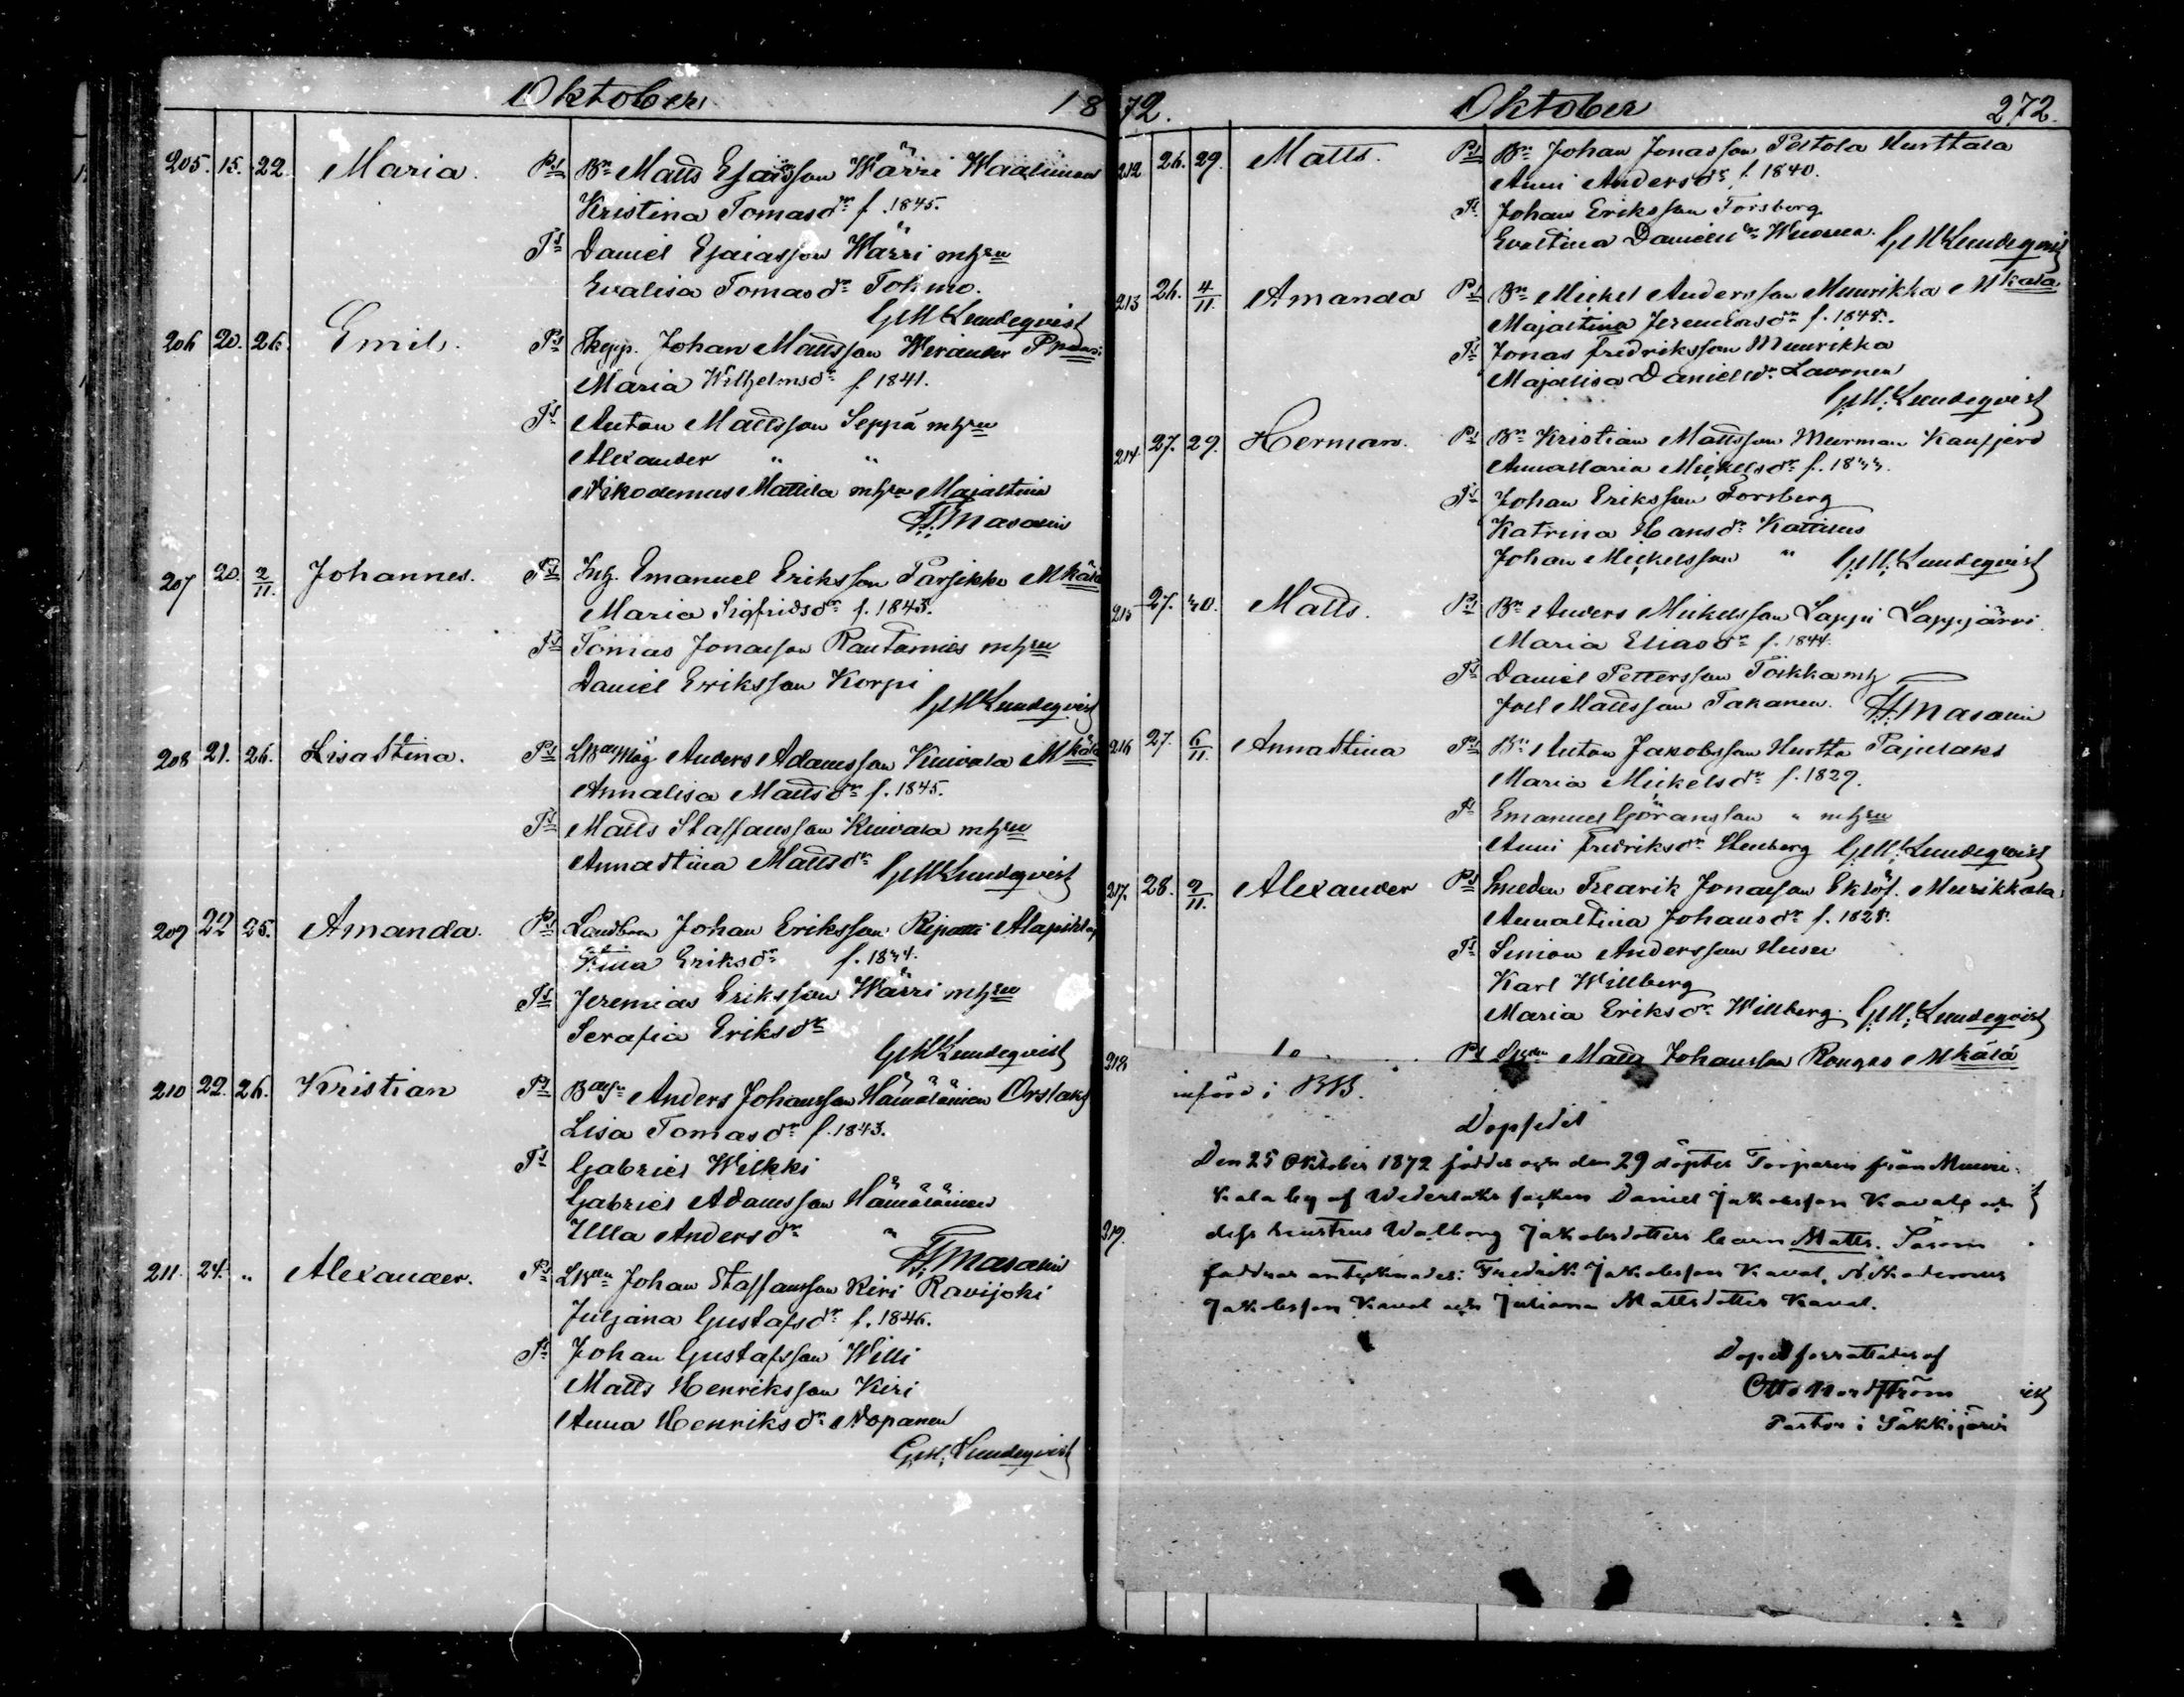 Oktober 18
205. 15. 22. Maria. Ps Bn Matts Esaiasson Wärri Waalimaa
Kristina Tomasdr f. 1845.
Ts Daniel Esaiasson Wärri m hu
Evalisa Tomasdr Tohmo.
GWLundeqvist
206 20. 26. Emil. Ps Johan Mattsson Wirander
Maria Wilhelmsdr f. 1841.
Ts Anton Mattsson Seppä m hu
Alexander " "
Nikodemus Mattila m hu Majastina
Masalin
207 20. 2/11. Johannes. Ps Inh. Emanuel Eriksson Parsikka Mkala
Maria Sigfridsdr f. 1843.
Ts Tomas Jonasson Rautamies m hu
Daniel Eriksson Korpi
GWLundeqvist
208 21. 26. Lisa Stina. Ps Anders Adamsson Kuivala Mkala
Annalisa Mattsdr f. 1845.
Ts Matts Staffansson Kuivala m hu
Annastina Mattsdr GWLundeqvist
209 22 25. Amanda. Ps Landbon Johan Eriksson Ripatti Alapihlaja
Stina Eriksdr f. 1834.
Ts Jeremias Eriksson Wärri m hu
Serafia Eriksdr
GWLundeqvist
210 22. 26. Kristian Ps Anders Johansson Hämäläinen Orslaks
Lisa Tomasdr f. 1843.
Ts Gabriel Wilkki
Gabriel Adamsson Hämäläinen
Ulla Andersdr "
Masalin
211. 24. " Alexander. Ps Johan Staffansson Kiri Ravijoki
Juljana Gustafsdr f. 1846.
Ts Johan Gustafsson Willi
Matts Henriksson Kiri
Anna Henriksdr Nopanen
GW. Lundeqvist
72. Oktober 272.
212 26. 29. Matts. Ps Bn Johan Jonasson Peltola Hurttala
Anni Andersdr f. 1840.
Ts Johan Eriksson Forsberg
Evastina Danielsdr GWLundeqvist
213 26. 4/11. Amanda Ps Bn Mickel Andersson Muurikka Mkala
Majastina Jeremiasdr f. 1848.
Ts Jonas Fredriksson Muurikka
Majalisa Danielsdr Lavonen
GW. Lundeqvist
214. 27. 29. Herman. Ps Bn Kristian Mattsson Muurman Kausjerd
Annamaria Mickelsdr f. 1833.
Ts Johan Eriksson Forsberg
Katrina Hansdr Kattilus
Johan Mickelsson " GW. Lundeqvist
215 27. 30. Matts. Ps Bn Anders Mickelsson Lappi Lappjärvi
Maria Eliasdr f. 1844.
Ts Daniel Pettersson Toikka m h
Joel Mattsson Takanen. Masalin
216 27. 6/11. Annastina Ps Bn Anton Jakobsson Hurtta Pajulaks
Maria Mickelsdr f. 1829.
Ts Emanuel Göransson " m hu
Anni Fredriksdr Stenberg GW. Lundeqvist
217. 28. 2/11. Alexander Ps Smeden Fredrik Jonasson Eklöf. Muurikkala
Annastina Johansdr f. 1828.
Ts Simion Andersson Husu
Karl Willberg
Maria Eriksdr Willberg. GW. Lundeqvist
218 Ps Matts Johansson Rongas Mkala
införd i BB.
Dopsedel
Den 25 Oktober 1872 föddes och den 29 döptes Torparen från Muuri-
kala by af Wederlaks socken Daniel Jakobsson Kavals och
dess hustrus Walborg Jakobsdotters barn Matts. Såsom
219.
faddrar antecknades: Fredrik Jakobsson Kaval, Nikodemus
Jakobsson Kaval och Juliana Mattsdotter Kaval.
Dopet förrättades af
Otto Nordström
Pastor i Säkkijärvi